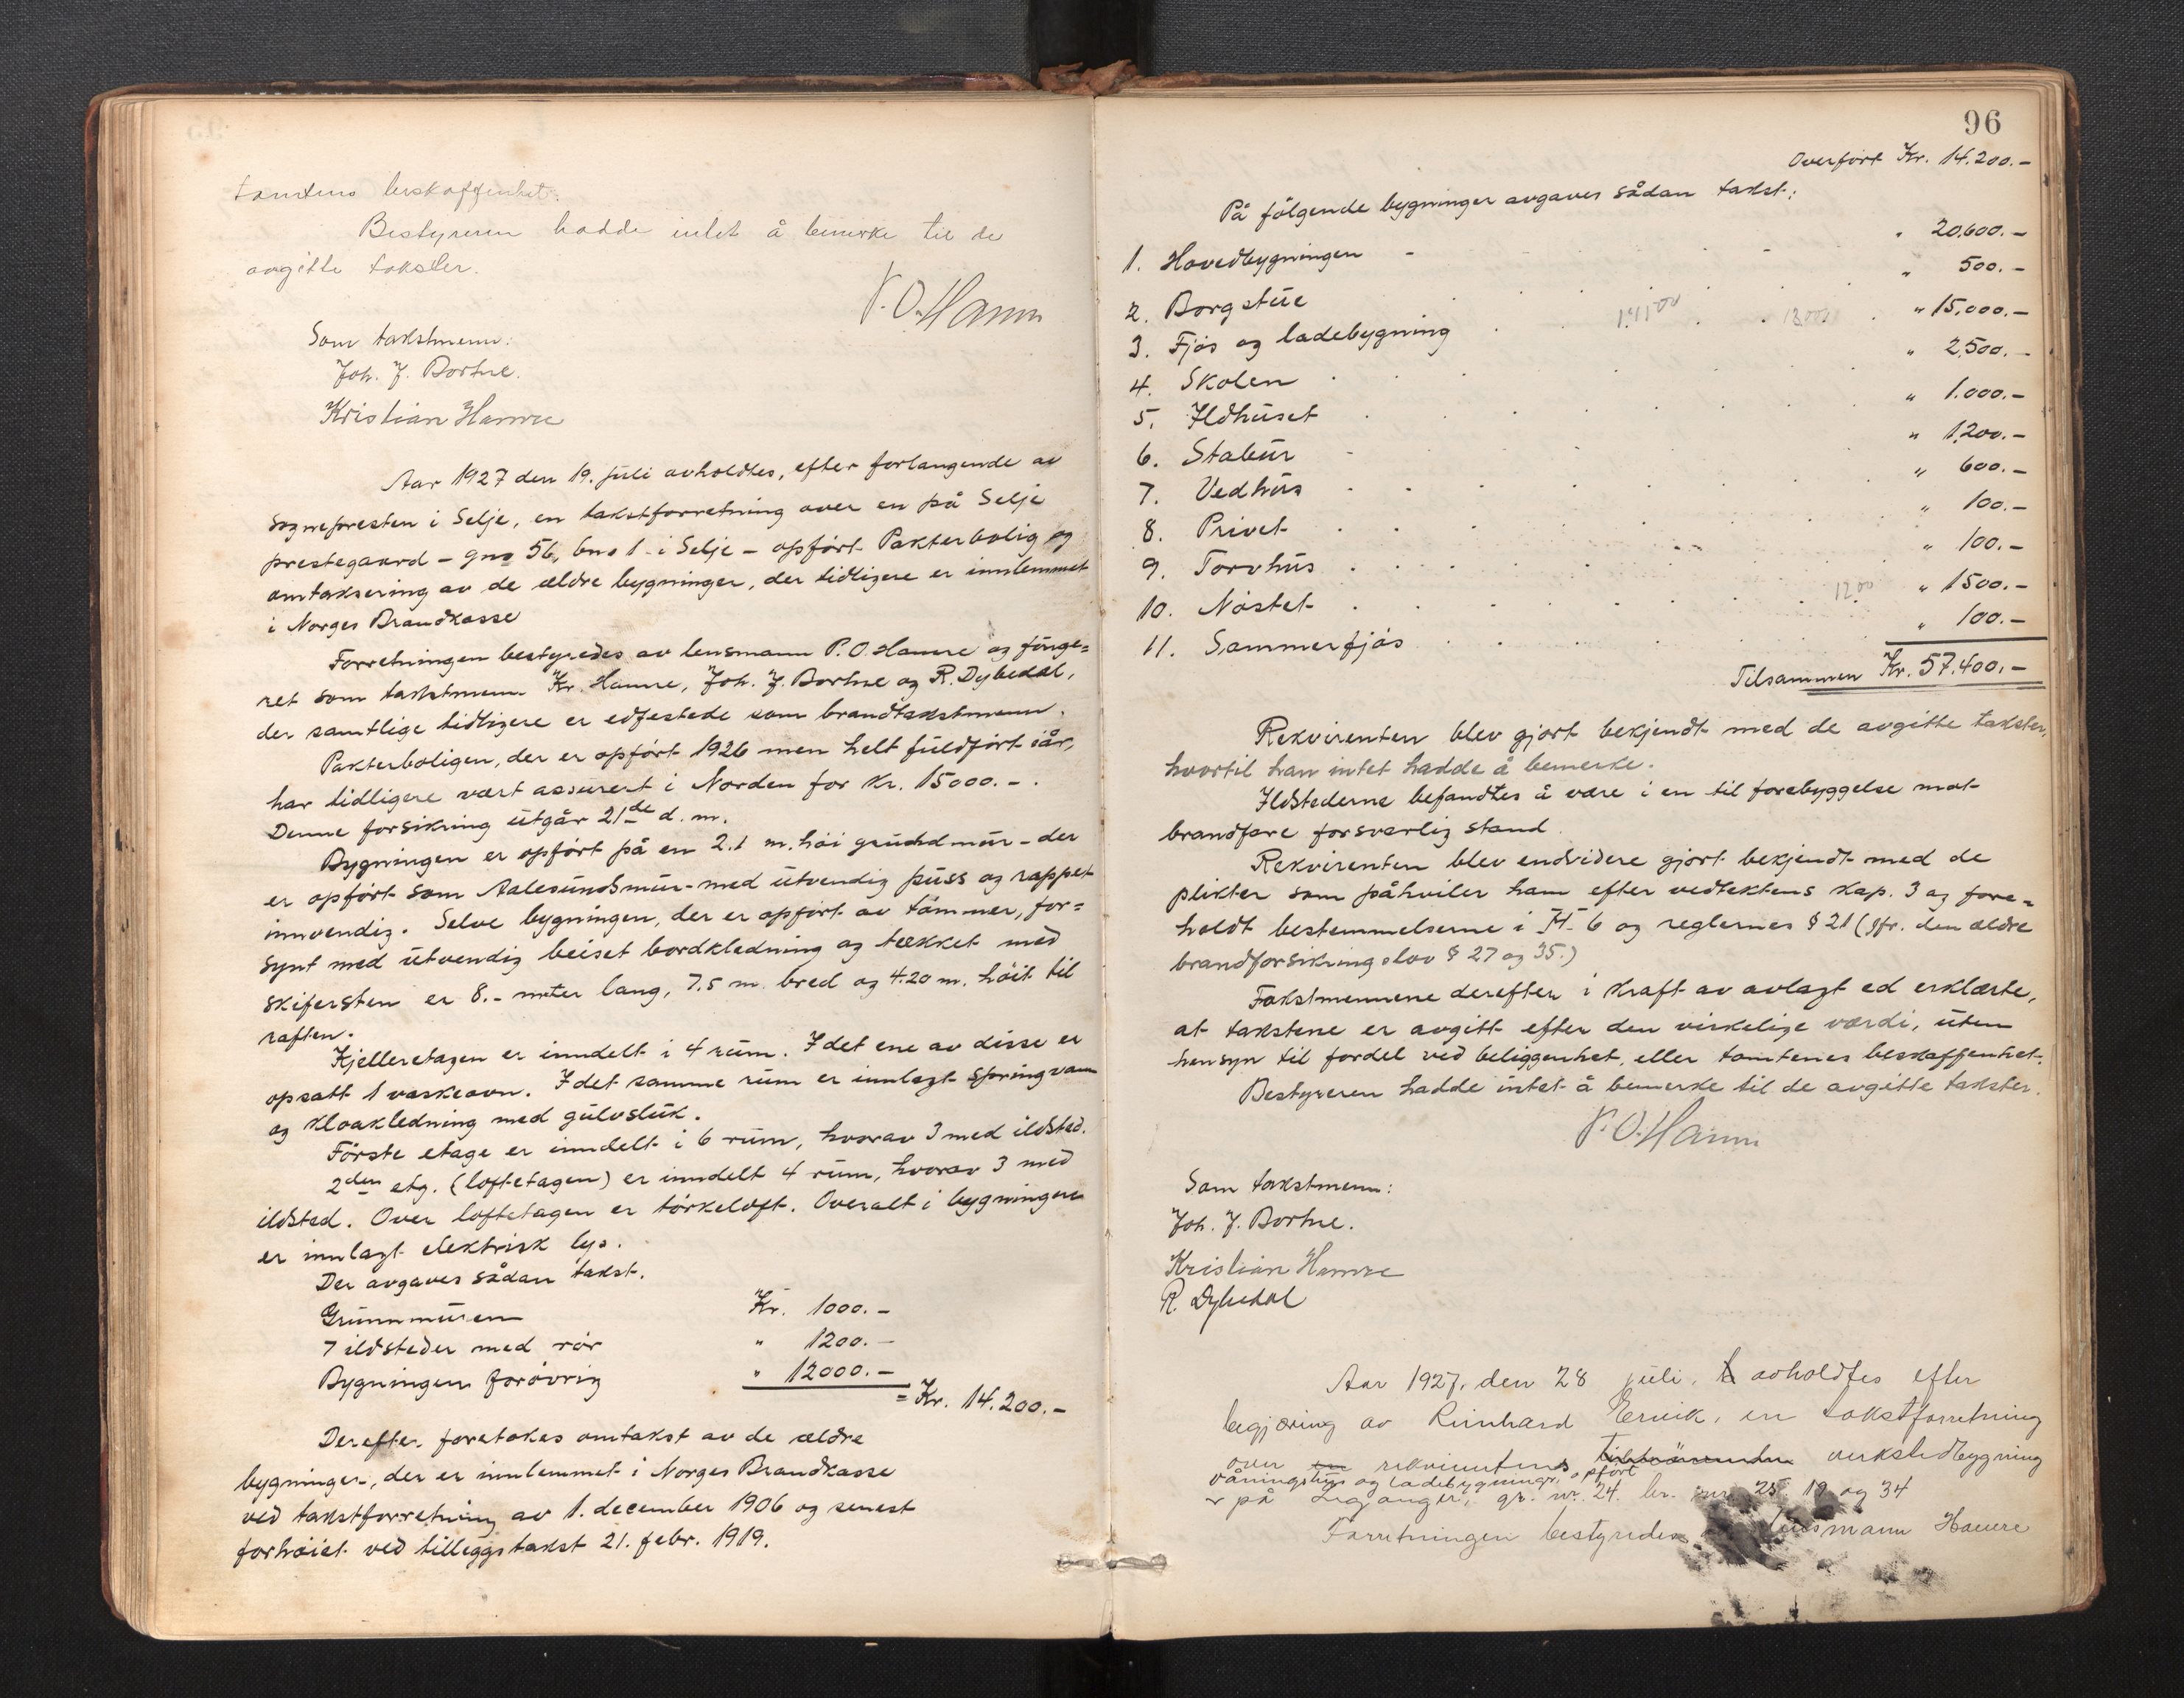 tomtens beskaffenhet.
Bestyreren hadde intet å bemerke til de
avgitte takster.
P. O. Hamre
Som takstmenn:
Joh. J. Bortne.
Kristian Hamre
Aar 1927 den 19. juli avholdtes, efter forlangende av
sognepresten i Selje, en takstforretning over en på Selje
prestegaard – gno 56, bno 1 i Selje – opført Pakterbolig og
omtaksering av de ældre bygninger, der tidligere er innlemmet
i Norges Brandkasse
Forretningen bestyredes av lensmann P. O. Hamre og funge=
ret som takstmenn Kr. Hamre, Joh. J. Bortne og R. Dybedal,
der samtlige tidligere er edfestede som brandtakstmenn.
Pakterboligen, der er opført 1926 men helt fuldført iår,
har tidligere vært assurert i Norden for Kr. 15000.- .
Denne forsikring utgår 21de d. m.
Bygningen er opført på en 2.1 m. høi grundmur – der
er opført som Aalesundsmur – med utvendig puss og rappet
innvendig. Selve bygningen, der er opført av tømmer, for=
synt med utvendig beiset bordkledning og tækket med
skifersten er 8.- meter lang, 7.5 m. bred og 4.20 m. høit til
raften.
Kjelleretagen er inndelt i 4 rum. I det ene av disse er
opsatt 1 vaskeovn. I det samme rum er innlagt springvann
og kloakledning med gulvsluk.
Første etage er inndelt i 6 rum, hvorav 3 med ildsted.
2den etg. (loftetagen) er inndelt 4 rum, hvorav 3 med
ildsted. Over loftetagen er tørkeloft. Overalt i bygningen
er innlagt elektrisk lys.
Der avgaves sådan takst.
Grunnmuren Kr. 1000.-
7 ildsteder med rør " 1200.-
Bygningen forøvrig " 12000.-
= Kr. 14.200.-
Derefter foretokes omtakst av de ældre
bygninger, der er innlemmet i Norges Brandkasse
ved takstforretning av 1. december 1906 og senest
forhøiet ved tilleggstakst 21. febr. 1919.
96
Overført Kr. 14.200.-
På følgende bygninger avgaves sådan takst:
1. Hovedbygningen " 20.600.-
2. Borgstue " 500.-
3. Fjøs og ladebygning " 15.000.-
4. Skolen " 2.500.-
5. Ildhuset " 1.000.-
6. Stabur " 1.200.-
7. Vedhus " 600.-
8. Privet " 100.-
9. Torvhus " 100.-
10. Nøstet 1200 " 1500.-
11. Sommerfjøs " 100.-
Tilsammen Kr. 57.400.-
Rekvirenten blev gjort bekjendt med de avgitte takster,
hvortil han intet hadde å bemerke.
Ildstederne befandtes å være i en til forebyggelse mot
brandfare forsvarlig stand.
Rekvirenten blev endvidere gjort bekjendt med de
plikter som påhviler ham efter vedtektens kap. 3 og fore=
holdt bestemmelserne i 6 og reglernes § 21 (jfr. den ældre
brandforsikringslov § 27 og 35.)
Takstmennene derefter i kraft av avlagt ed erklærte,
at takstene er avgitt efter den virkelige værdi, uten
hensyn til fordel ved beliggenhet, eller tomtenes beskaffenhet.
Bestyreren hadde intet å bemerke til de avgitte takster.
P. O. Hamre
Som takstmenn:
Joh. J. Bortne.
Kristian Hamre
R. Dybedal
Aar 1927, den 28 juli, avholdtes efter
begjæring av Reinhard Ervik, en takstforretning
over en rekvirentens verkstedbygning
våningshus og ladebygninger, opført
på gr. nr. 24. br. 25. 19 og 34
Forretningen bestyredes lensmann Hamre